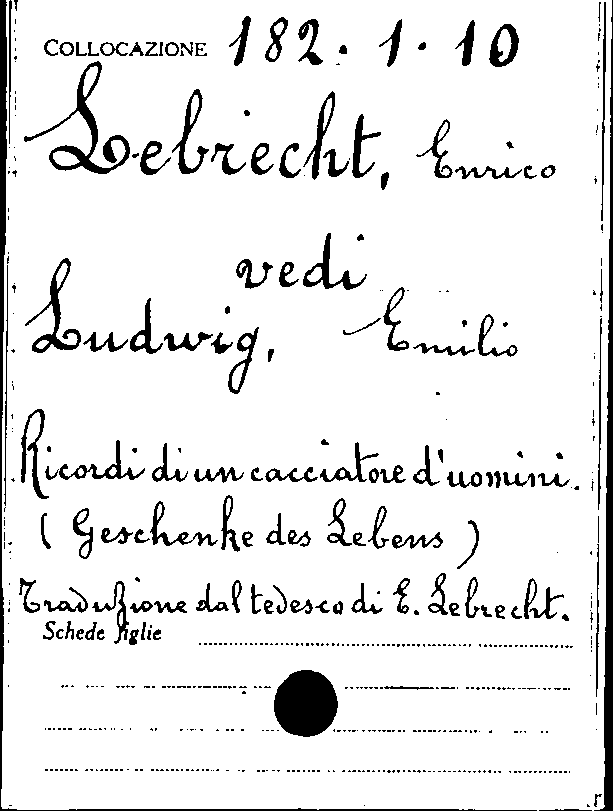 COLLOCAZIONE 182.1.10
Lebrecht, Enrico
vedi
Ludwig, Emilio
Ricordi di un cacciatore d'uomini.
( Geschenke des Lebens )
Traduzione dal tedesco di E. Lebrecht.
Schede figlie